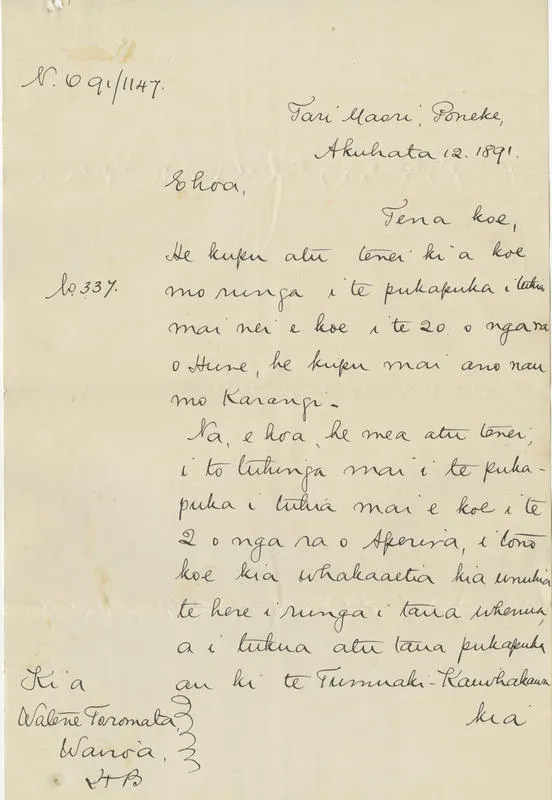 N. O 91/1147.
Tari Maori, Poneke,
Akuhata 12. 1891.
E hoa,
Tena koe,
He kupu atu tenei ki a koe
No. 337.
mo runga i te pukapuka i tukua
mai nei e koe i te 20 o nga ra
o Hune, he kupu mai ano nau
mo Karangi -
Na, e hoa, he mea atu tenei,
i to tuhinga mai i te puka-
puka i tukia mai e koe i te
2 o nga ra o Aperira, i tono
koe kia whakaaetia kia unuhia
te here i runga i taua whenua,
a i tukua atu taua pukapuka
au ki te Tumuaki-Kaiwhakawa
kia
Ki a
Watene
Wairoa,
H B